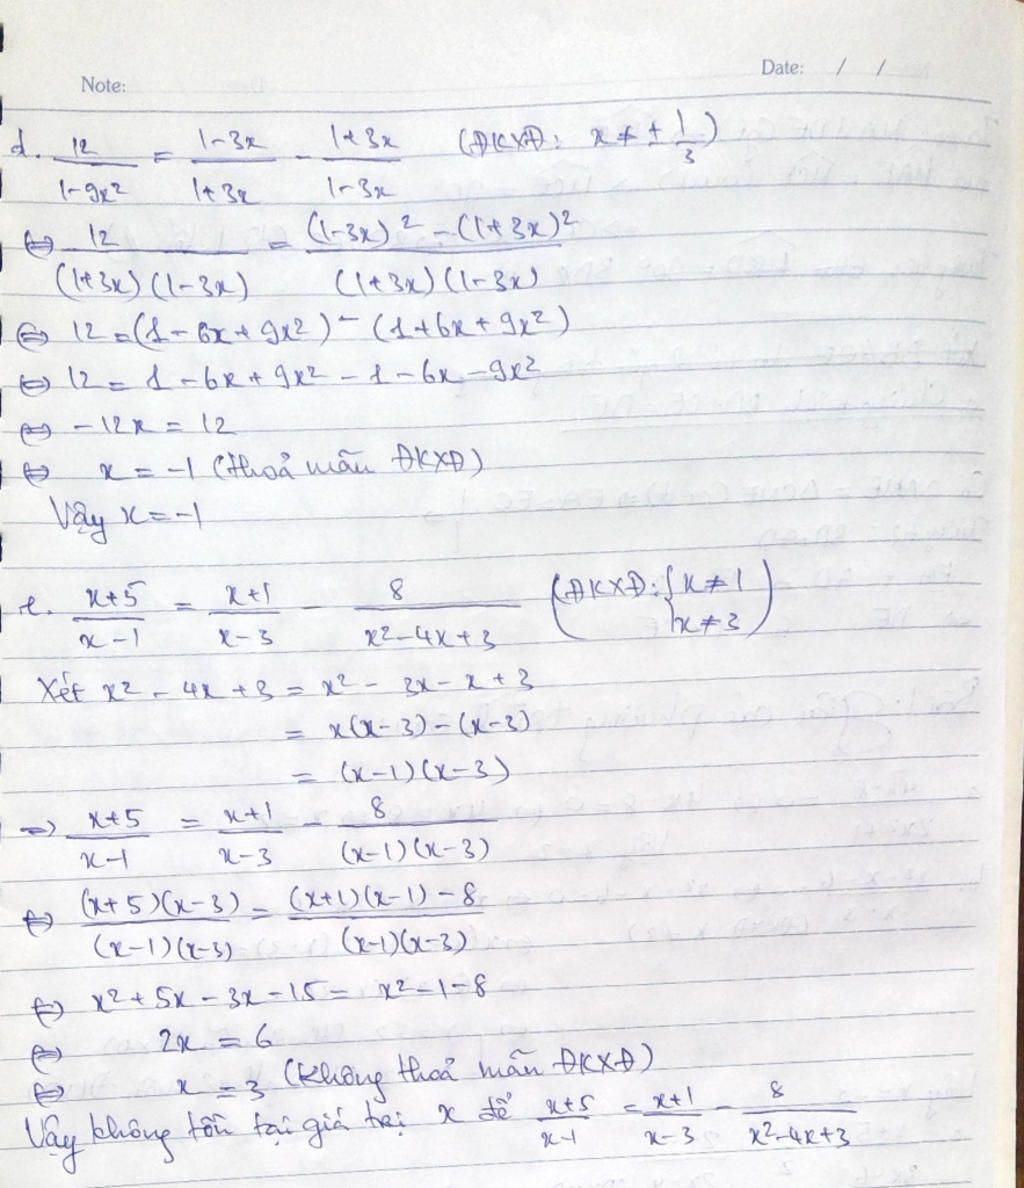 Note:
Date: / /
d. 12/(1-9x²) = (1-3x)/(1+3x) - (1+3x)/(1-3x) (ĐKXĐ: x ≠ ± 1/3)
⇔ 12/((1+3x)(1-3x)) = ((1-3x)² - (1+3x)²)/((1+3x)(1-3x))
⇔ 12 = (1 - 6x + 9x²) - (1 + 6x + 9x²)
⇔ 12 = 1 - 6x + 9x² - 1 - 6x - 9x²
⇔ -12x = 12
⇔ x = -1 (thoả mãn ĐKXĐ)
Vậy x = -1
e. (x+5)/(x-1) = (x+1)/(x-3) - 8/(x²-4x+3) (ĐKXĐ: { x ≠ 1 x ≠ 3)
Xét x² - 4x + 3 = x² - 3x - x + 3
= x(x-3) - (x-3)
= (x-1)(x-3)
⇒ (x+5)/(x-1) = (x+1)/(x-3) - 8/((x-1)(x-3))
⇔ ((x+5)(x-3))/((x-1)(x-3)) = ((x+1)(x-1) - 8)/((x-1)(x-3))
⇔ x² + 5x - 3x - 15 = x² - 1 - 8
⇔ 2x = 6
⇔ x = 3 (không thoả mãn ĐKXĐ)
Vậy không tồn tại giá trị x để (x+5)/(x-1) = (x+1)/(x-3) - 8/(x²-4x+3)